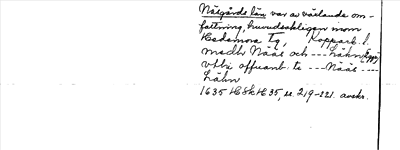 Näsgårds län var av växlande om-
fattning, huvudsakligen inom
Hedemora Fg, Kopparb. l.
medtr Nääs och --- Låhn
offuant. te --- Nääs ---
Låhn
1635 HSH 35, s. 219-221. avskr.